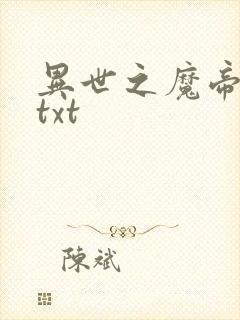 異世之魔帝
txt
陳斌